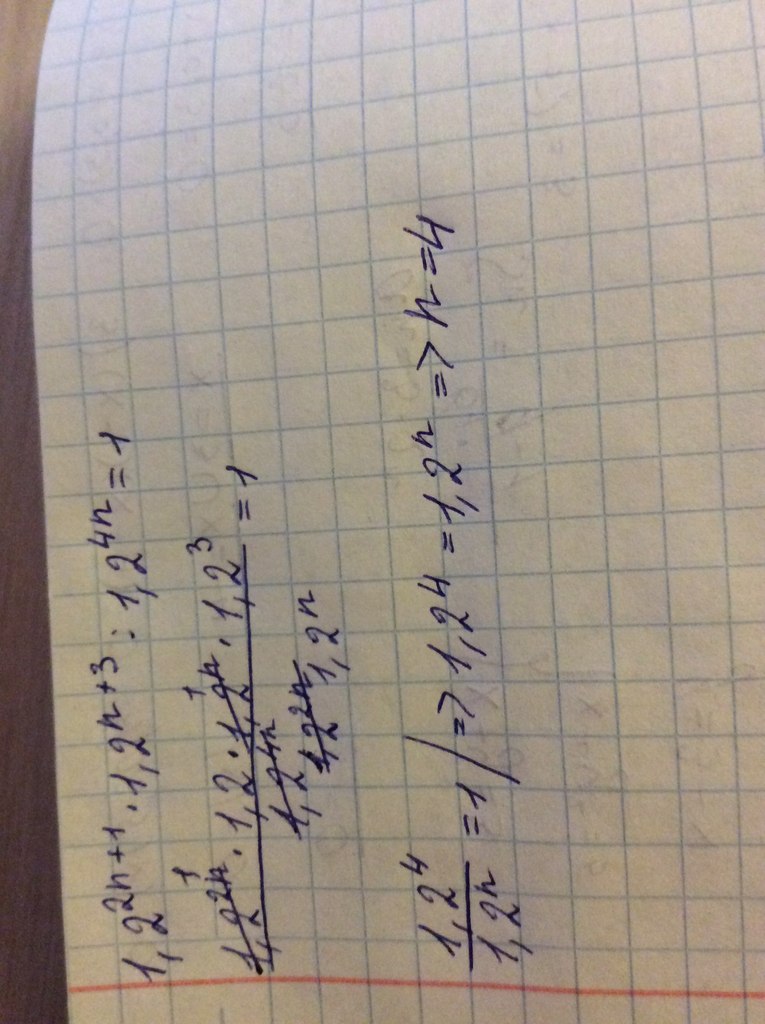 1,2^{2n+1} · 1,2^{n+3} : 1,2^{4n} = 1
1,2^{2n} 1 · 1,2 · 1,2^{n} 1 · 1,2^{3} = 1
1,2^{4n}
1,2^{2n} 1,2^{n}
1,2^{4} / 1,2^{n} = 1 / => 1,2^{4} = 1,2^{n} => n = 4